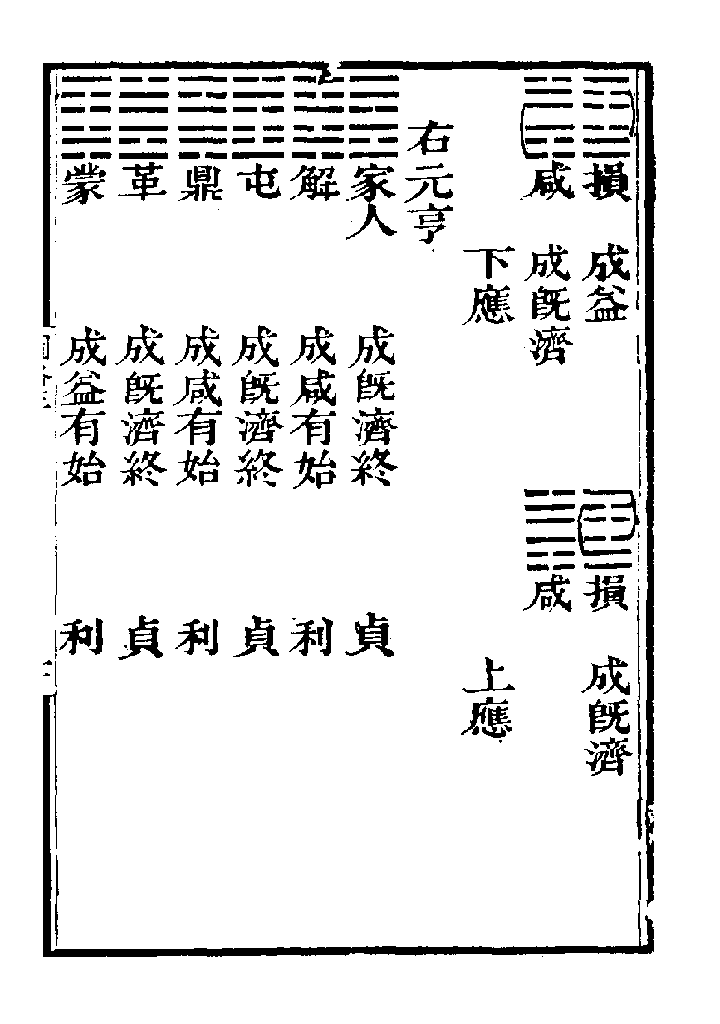 損　成益　損　成旣濟
咸　成旣濟　咸
下應　上應
右元亨
家人　成旣濟終　貞
解　成咸有始　利
屯　成旣濟終　貞
鼎　成咸有始　利
革　成旣濟終　貞
蒙　成益有始　利